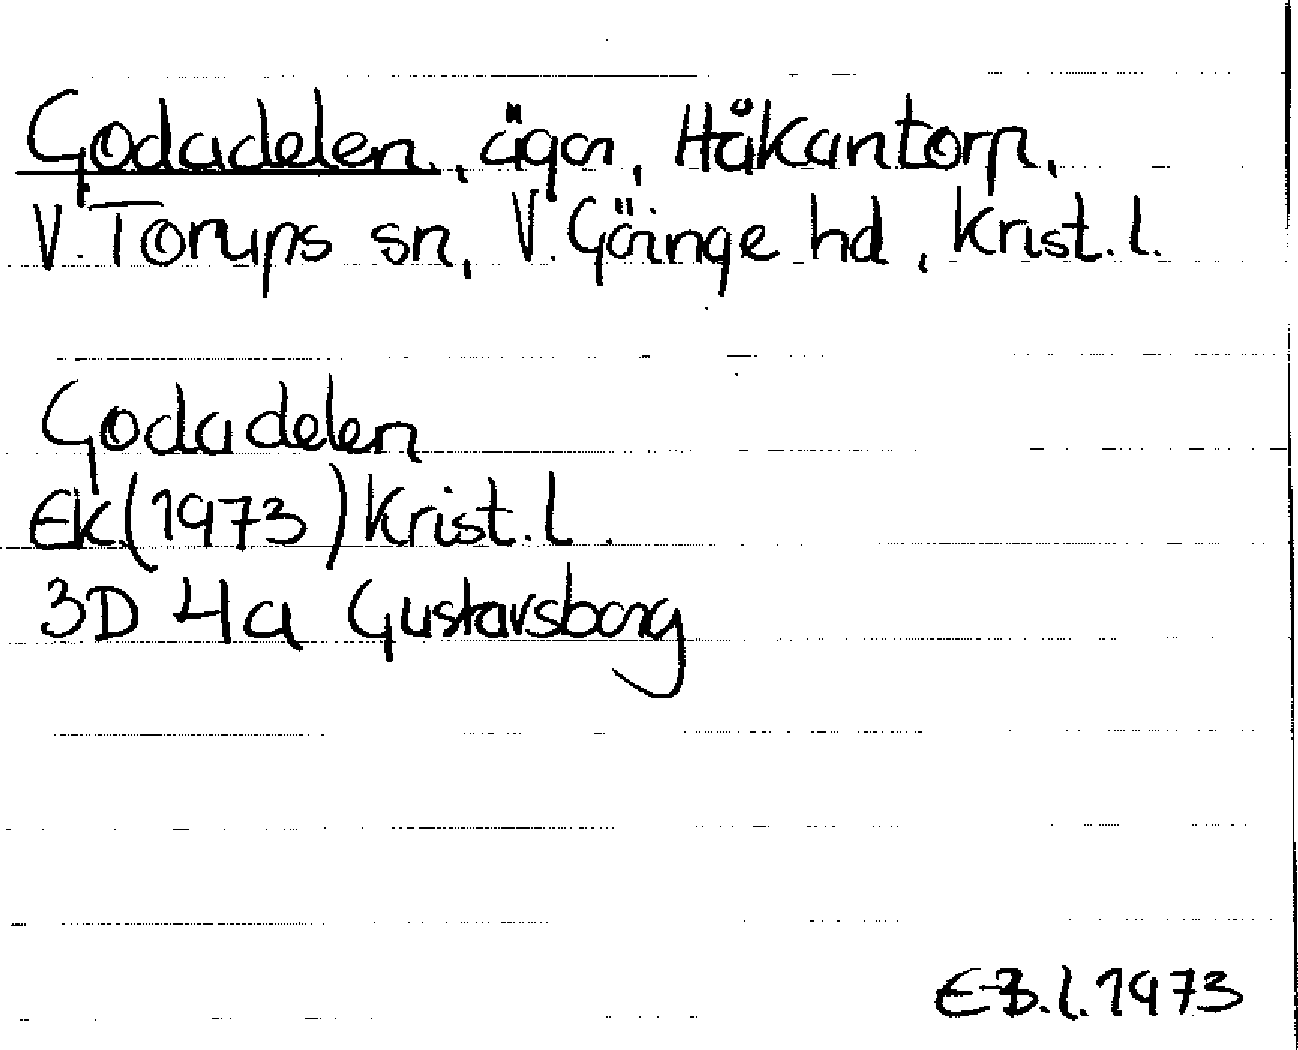 Godadelen, ägor, Håkantorp,
V. Torups sn, V. Göinge hd, Krist. l.
Godadelen
Ek (1973) Krist. l.
3D 4a Gustavsborg
E-B. l. 1973